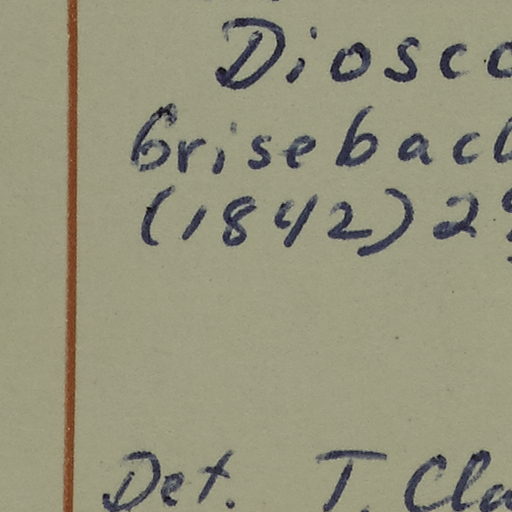 Diosco
Grisebach
(1842) 2
Det. T. Cla